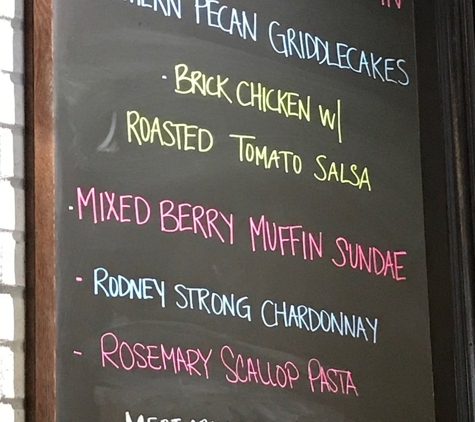 PECAN GRIDDLECAKES
· BRICK CHICKEN W/
ROASTED TOMATO SALSA
· MIXED BERRY MUFFIN SUNDAE
- RODNEY STRONG CHARDONNAY
- ROSEMARY SCALLOP PASTA